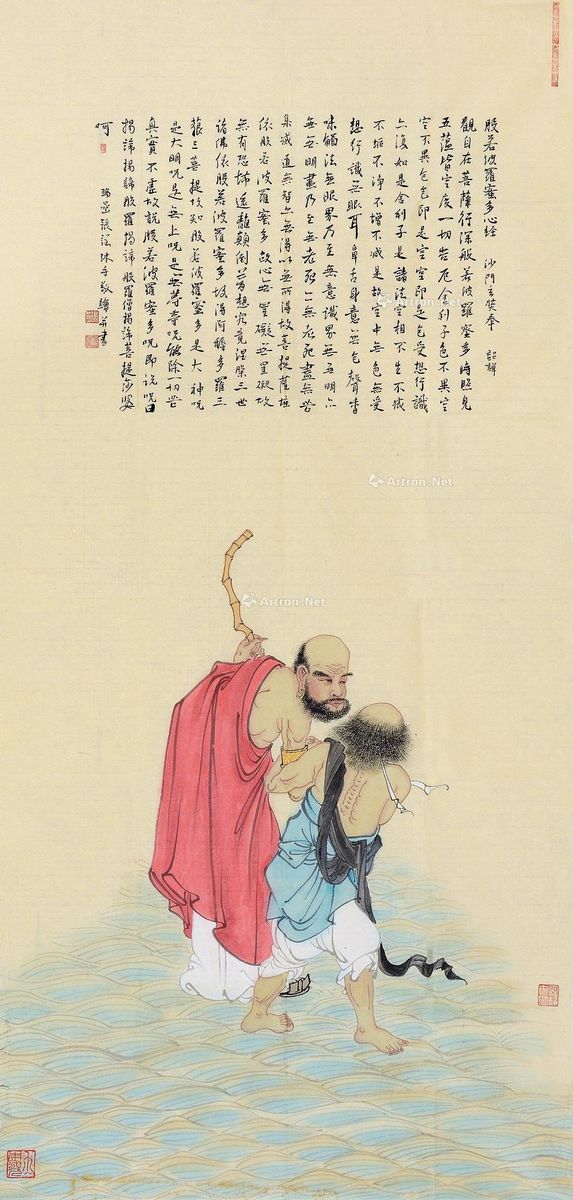 般若波羅蜜多心經 沙門玄奘奉 詔譯
觀自在菩薩行深般若波羅蜜多時照見
五蘊皆空度一切苦厄舍利子色不異空
空不異色色即是空空即是色受想行識
亦復如是舍利子是諸法空相不生不滅
不垢不淨不增不減是故空中無色無受
想行識無眼耳鼻舌身意無色聲香
味觸法無眼界乃至無意識界無無明亦
無無明盡乃至無老死亦無老死盡無苦
集滅道無智亦無得以無所得故菩提薩埵
依般若波羅蜜多故心無罣礙無罣礙故
無有恐怖遠離顛倒夢想究竟涅槃三世
諸佛依般若波羅蜜多故得阿耨多羅三
藐三菩提故知般若波羅蜜多是大神呪
是大明呪是無上呪是無等等呪能除一切苦
真實不虛故說般若波羅蜜多呪即說呪曰
揭諦揭諦般羅揭諦般羅僧揭諦菩提莎婆
呵
沐手敬繪并書
Artron.Net
Artron.Net
Artron.Net